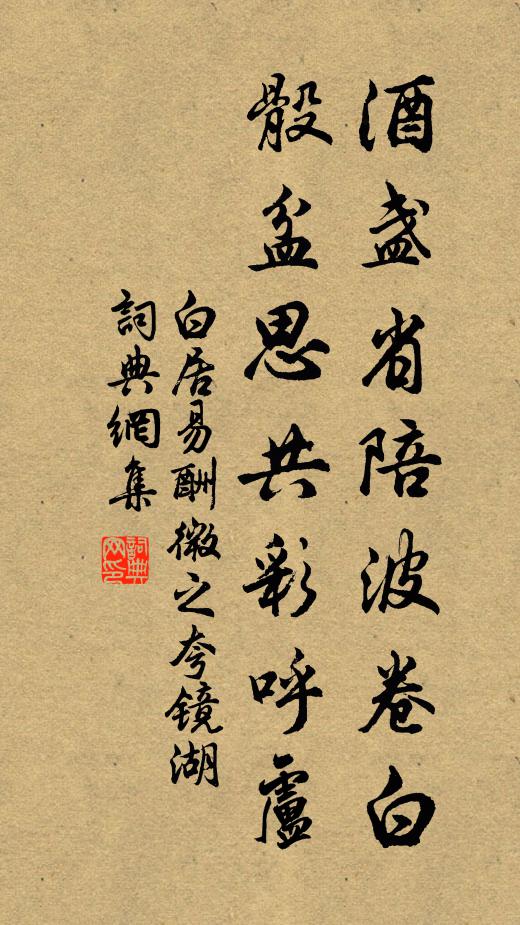 酒盏省陪波卷白
骰盆思共彩呼盧
白居易酬微之夸镜湖
詞典網集
詞典网印